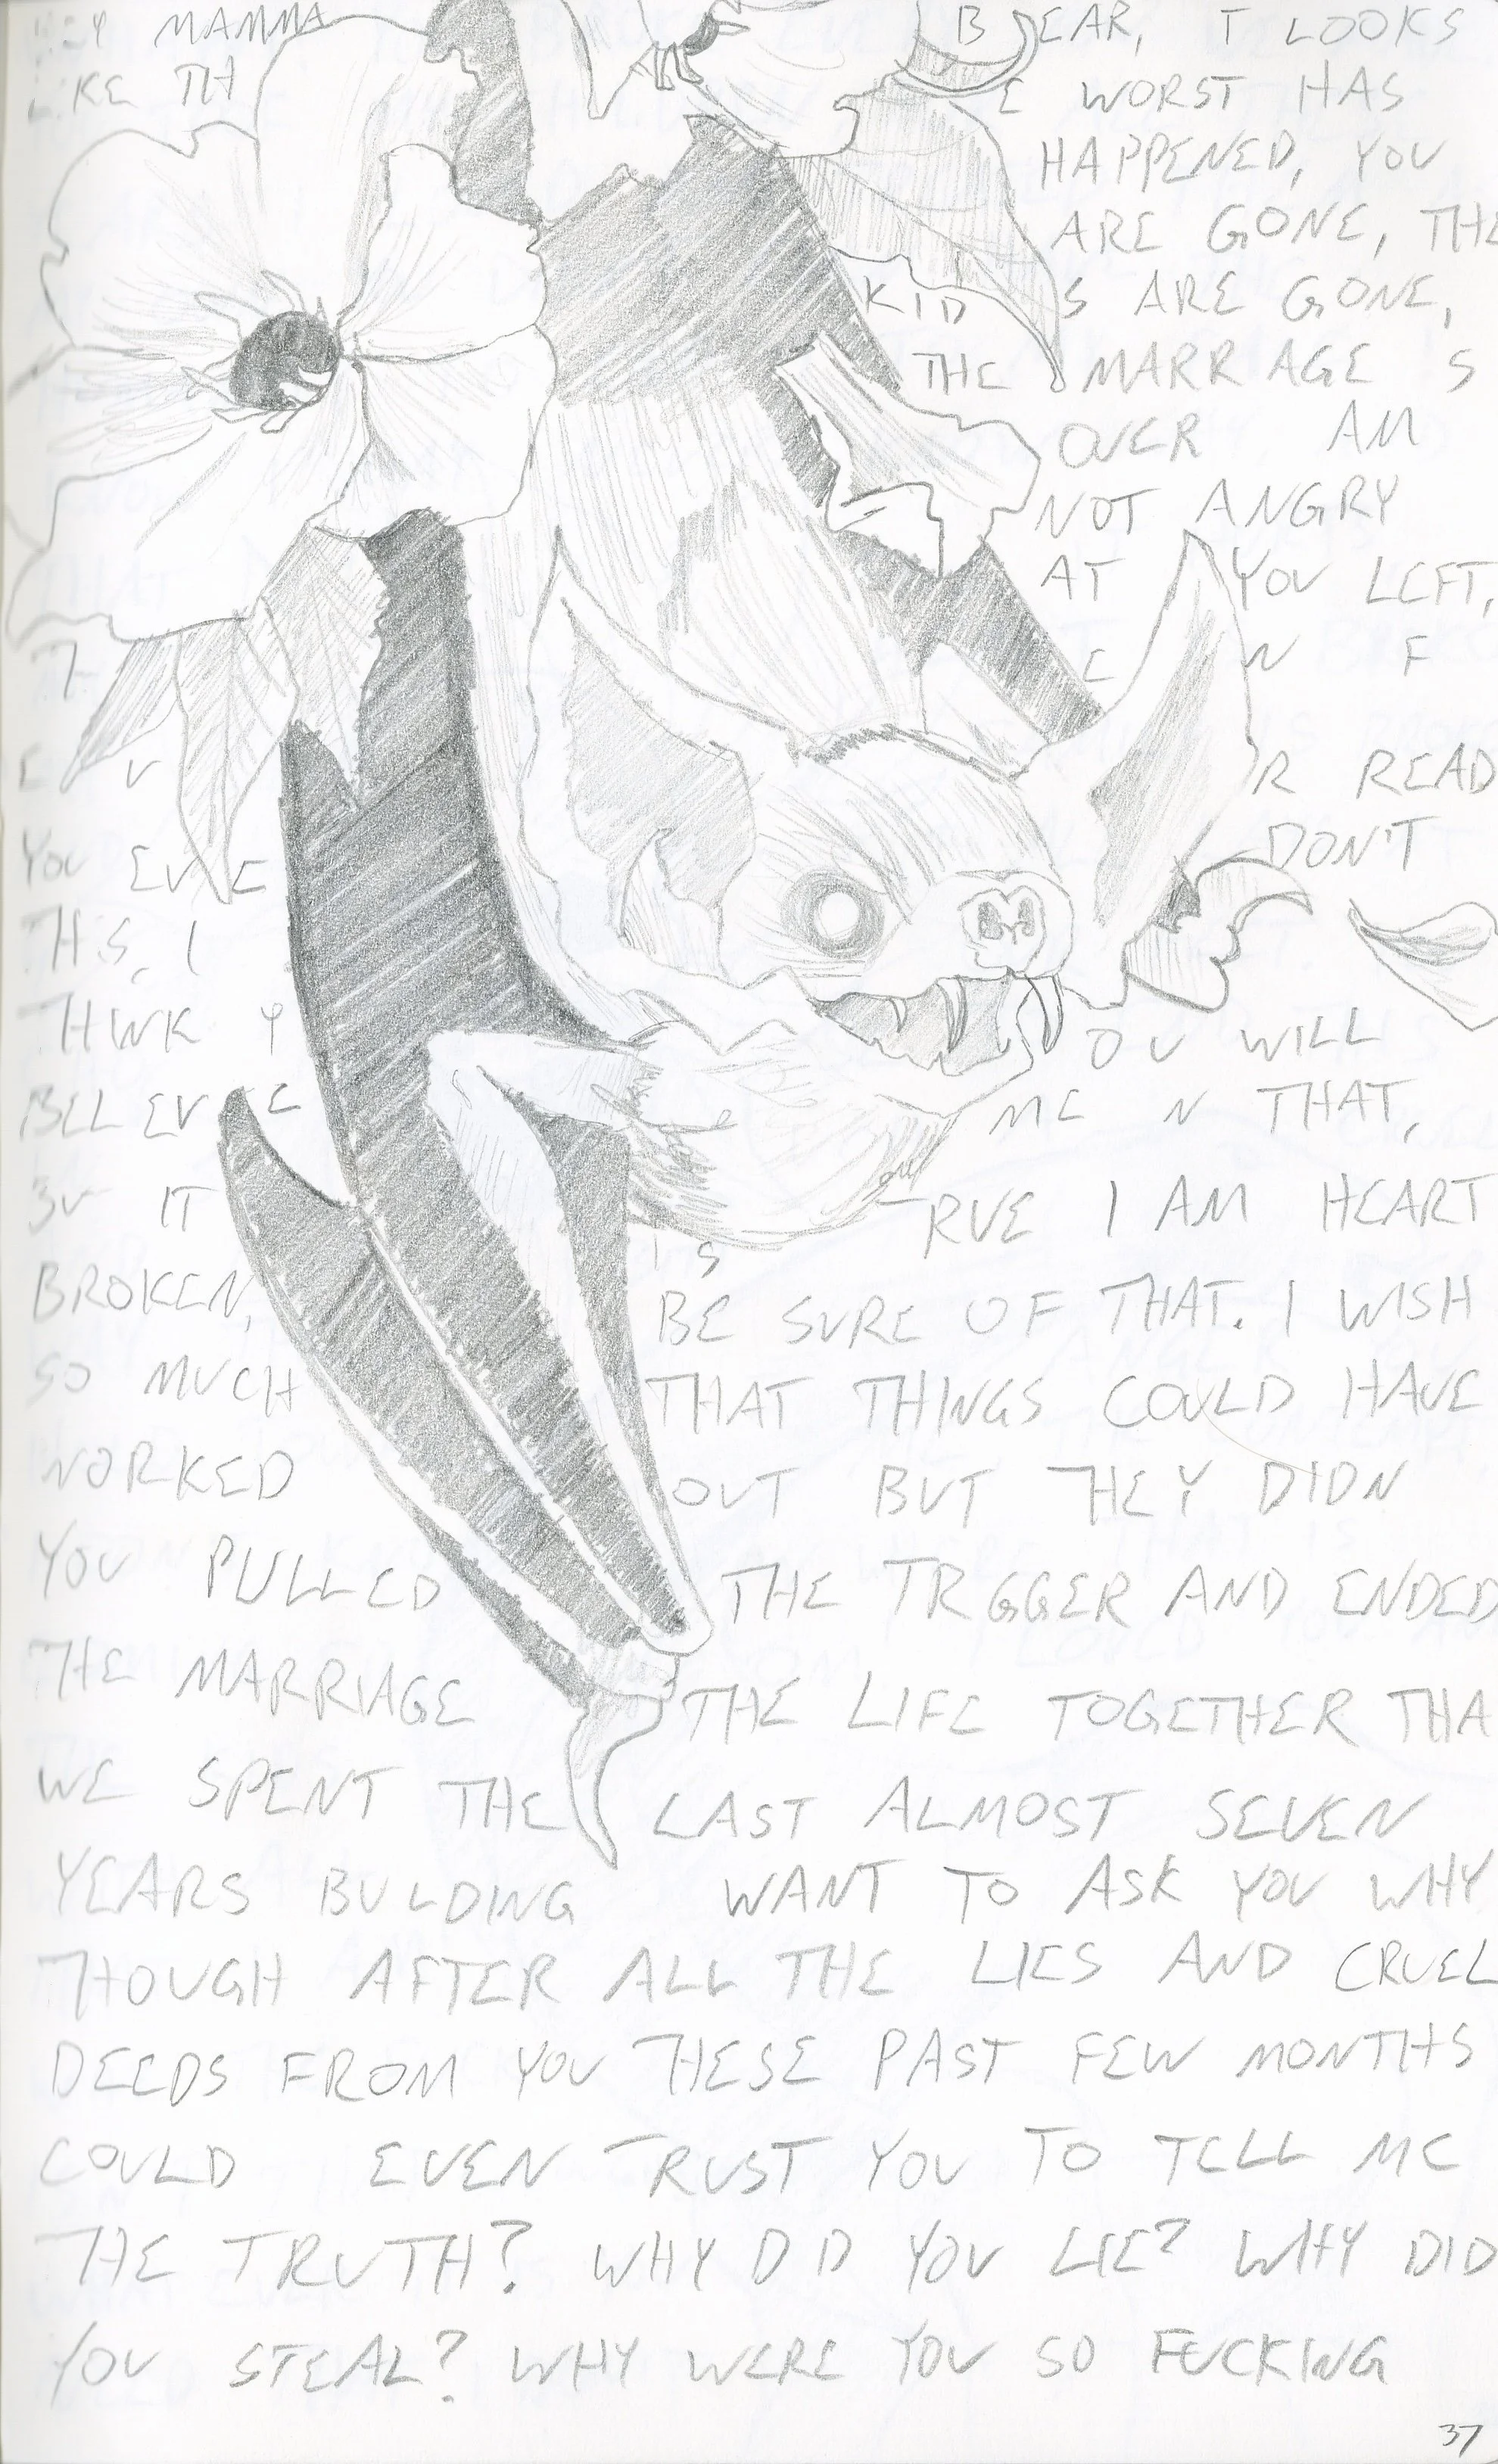 HEY MAMMA BEAR, T LOOKS
LIKE TH E WORST HAS
HAPPENED, YOU
ARE GONE, THE
KID S ARE GONE,
THE MARR AGE S
OVER AM
NOT ANGRY
AT YOU LEFT,
E N F
E V R READ
YOU EVE DON'T
TH S, I
THINK Y OU WILL
BEL EV E ME N THAT,
BU IT I S TRUE I AM HEART
BROKEN, BE SURE OF THAT. I WISH
SO MUCH THAT THINGS COULD HAVE
WORKED OUT BUT THEY DIDN
YOU PULLED THE TR GGER AND ENDED
THE MARRIAGE THE LIFE TOGETHER THA
WE SPENT THE LAST ALMOST SEVEN
YEARS BU LDING WANT TO ASK YOU WHY
THOUGH AFTER ALL THE LIES AND CRUEL
DEEDS FROM YOU THESE PAST FEW MONTHS
COULD EVEN TRUST YOU TO TELL ME
THE TRUTH? WHY D D YOU LIE? WHY DID
YOU STEAL? WHY WERE YOU SO FUCKING
37